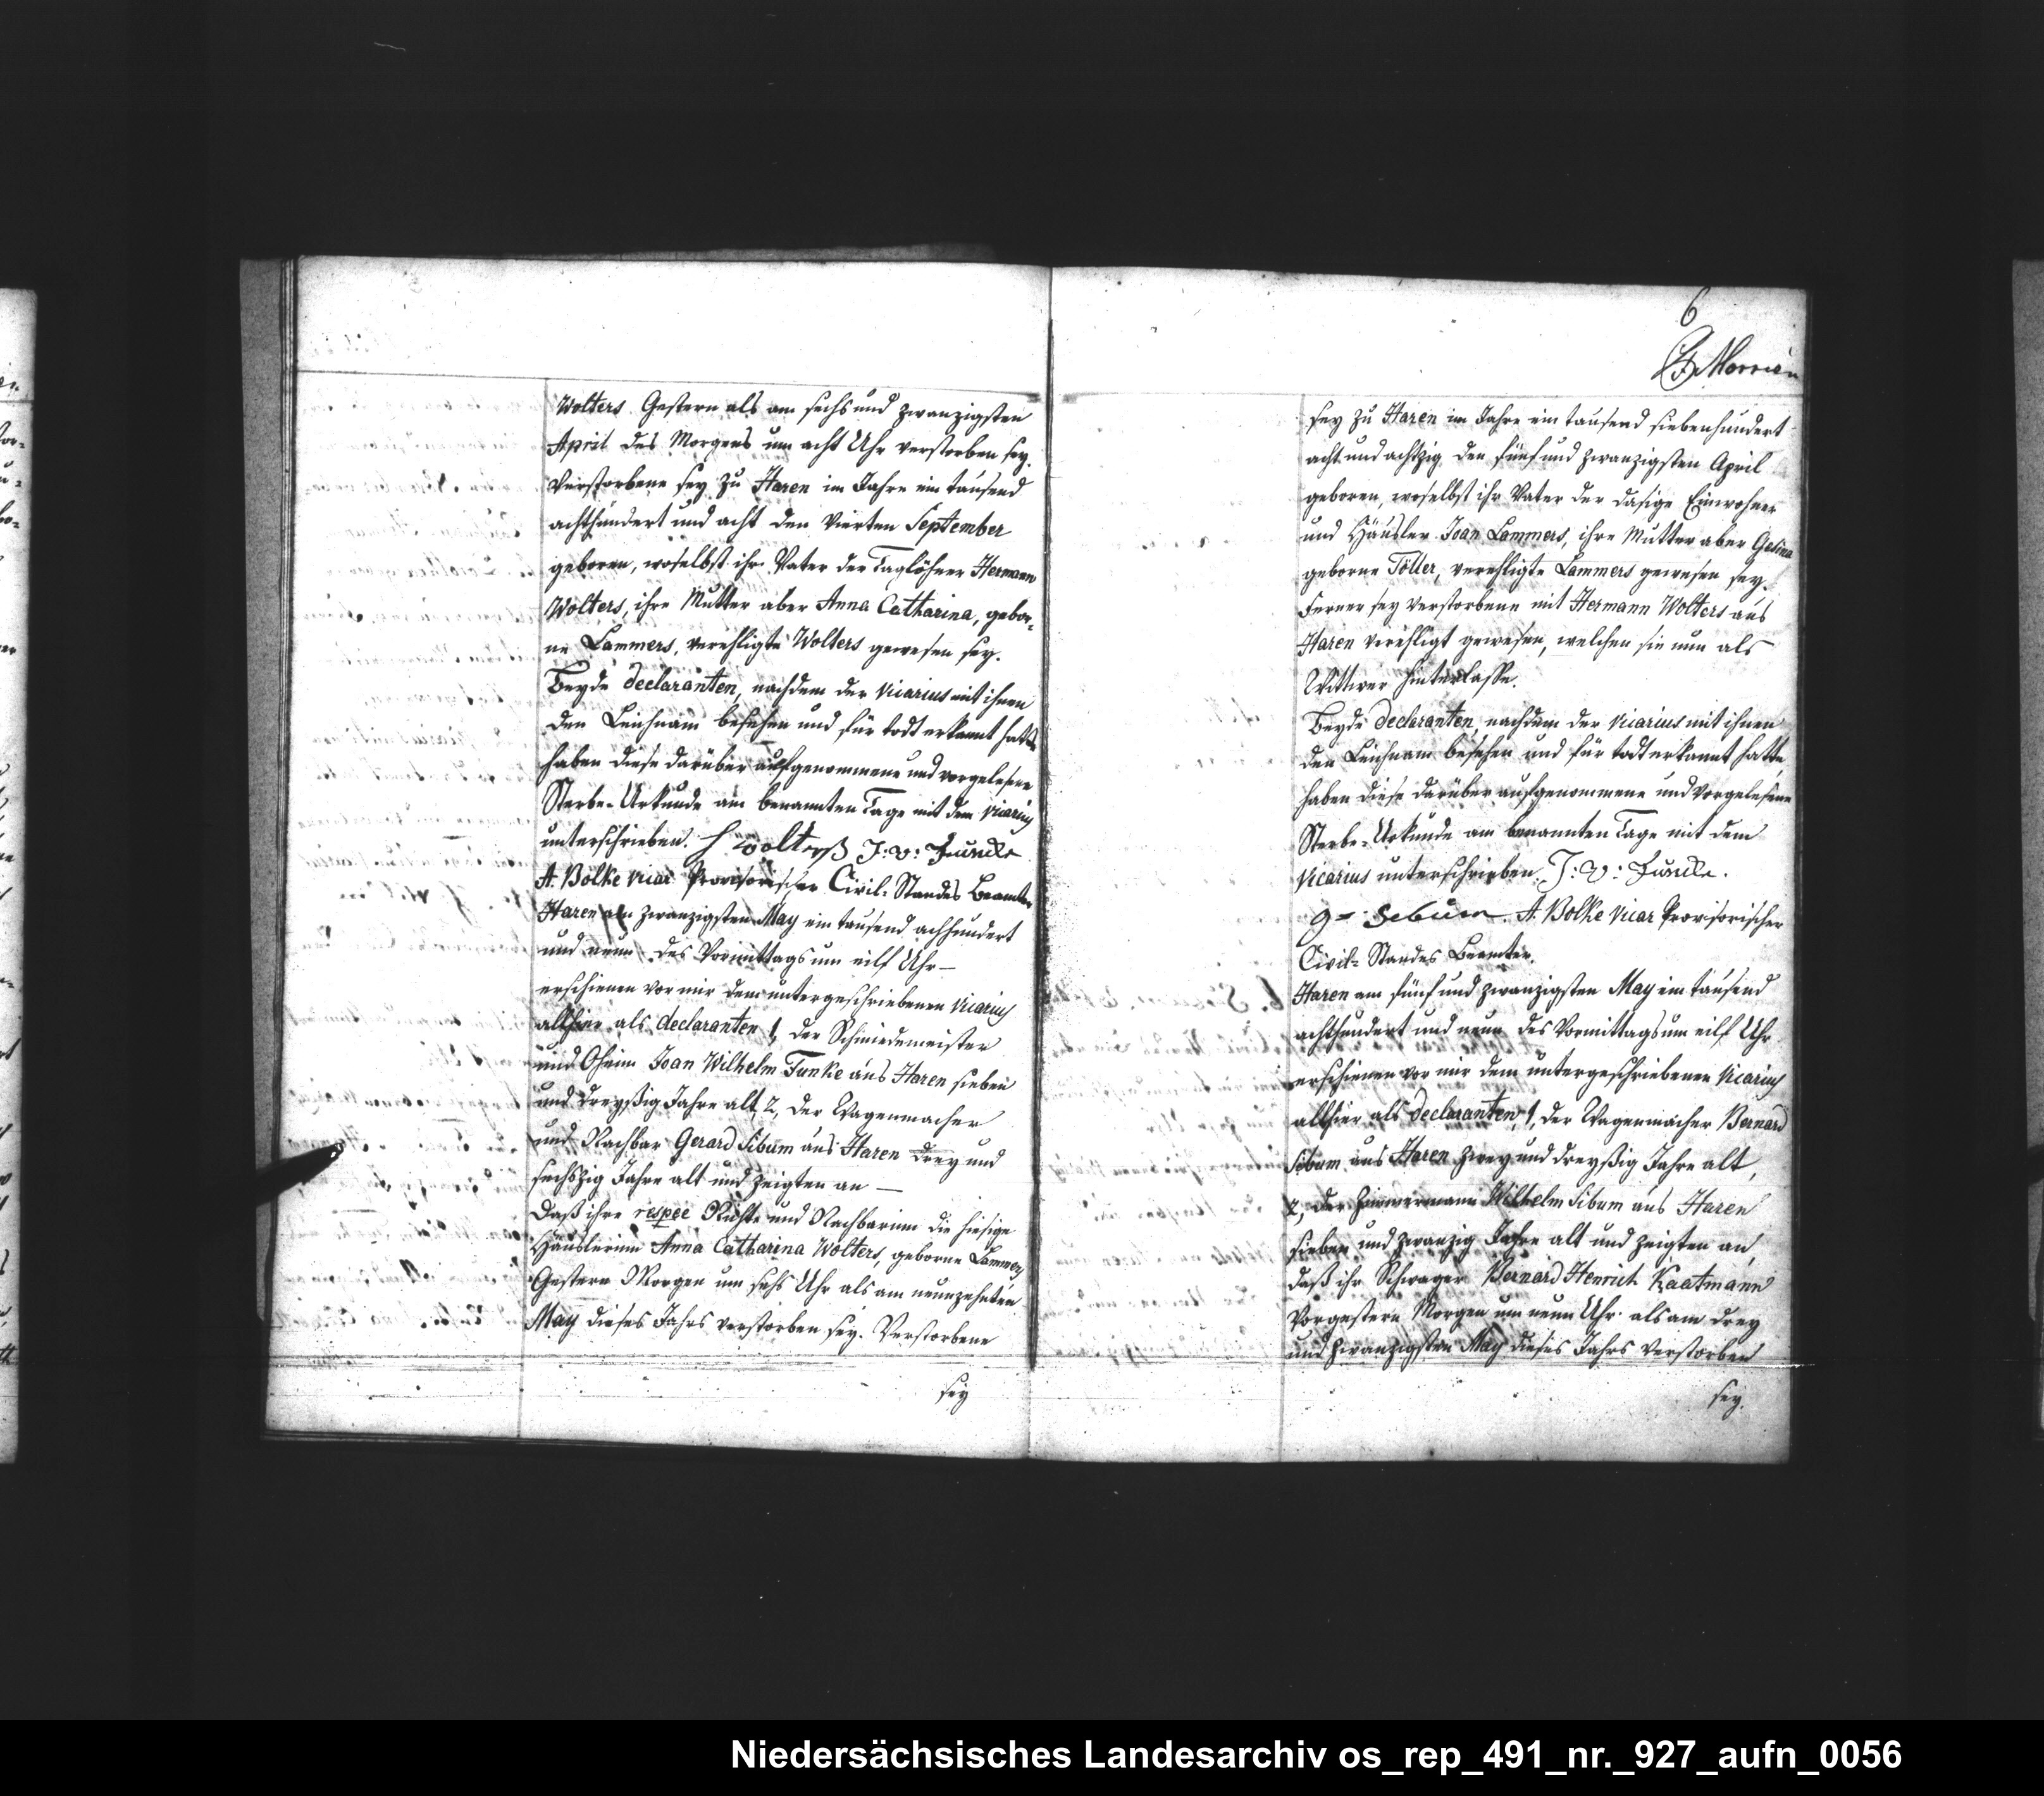 Wolters Gestern als am sechs und zwanzigsten
April des Morgens um acht Uhr verstorben sey.
Verstorbene sey zu Haren im Jahre ein tausend
achthundert und acht den vierten September
geboren, woselbst ihr Vater der Taglöhner Hermann
Wolters, ihre Mutter aber Anna Catharina, gebor-
ne Lammers, verehligte Wolters gewesen sey.
Beyde declaranten, nachdem der Vicarius mit ihnen
den Leichnam besehen und für todt erkannt hatte
haben diese darüber aufgenommene und vorgelesene
Sterbe-Urkunde am benannten Tage mit dem Vicarius
unterschrieben. H wolterß J: W: Funcke
A. Bölke Vicar Provisorischer Civil-Standes Beamter
Haren am zwanzigsten May ein tausend achhundert
und neun des Vormittags um eilf Uhr —
erschienen vor mir dem untergeschriebenen Vicarius
allhier als declaranten 1, der Schmiedemeister
und Oheim Joan Wilhelm Funke aus Haren sieben
und dreyßig Jahre alt, 2, der Wagenmacher
und Nachbar Gerard Sibum aus Haren drey und
sechszig Jahre alt und zeigten an —
daß ihre respee Nichte und Nachbarinn die hiesige
Häuslerinn Anna Catharina Wolters, geborne Lammers
Gestern Morgen um sechs Uhr als am neunzehnten
May dieses Jahrs verstorben sey. Verstorbene
sey
6
Morrien
sey zu Haren im Jahre ein tausend siebenhundert
acht und achtzig den fünf und zwanzigsten April
geboren, woselbst ihr Vater der dasige Einwohner
und Häusler Joan Lammers, ihre Mutter aber Gesina
geborne Töller, verehligte Lammers gewesen sey.
Ferner sey Verstorbene mit Hermann Wolters aus
Haren verehligt gewesen, welchen sie nun als
Wittwer hinterlasse.
Beyde declaranten, nachdem der Vicarius mit ihnen
den Leichnam besehen und für todt erkannt hatte,
haben diese darüber aufgenommene und vorgelesene
Sterbe-Urkunde am benannten Tage mit dem
Vicarius unterschrieben. J: W: Funcke.
g= Sebum. A. Bölke Vicar Provisorischer
Civil-Standes Beamter.
Haren am fünf und zwanzigsten May ein tausend
achthundert und neun des Vormittags um eilf Uhr
erschienen vor mir dem untergeschriebenen Vicarius
allhier als declaranten, 1, der Wagenmacher Bernard
Sibum aus Haren zwey und dreyßig Jahre alt,
2, der Zimmermann Wilhelm Sibum aus Haren
sieben und zwanzig Jahre alt und zeigten an,
daß ihr Schwager Bernard Henrich Kaatmann
Vorgestern Morgen um neun Uhr als am drey
und zwanzigsten May dieses Jahrs verstorben
sey.
Niedersächsisches Landesarchiv os_rep_491_nr._927_aufn_0056